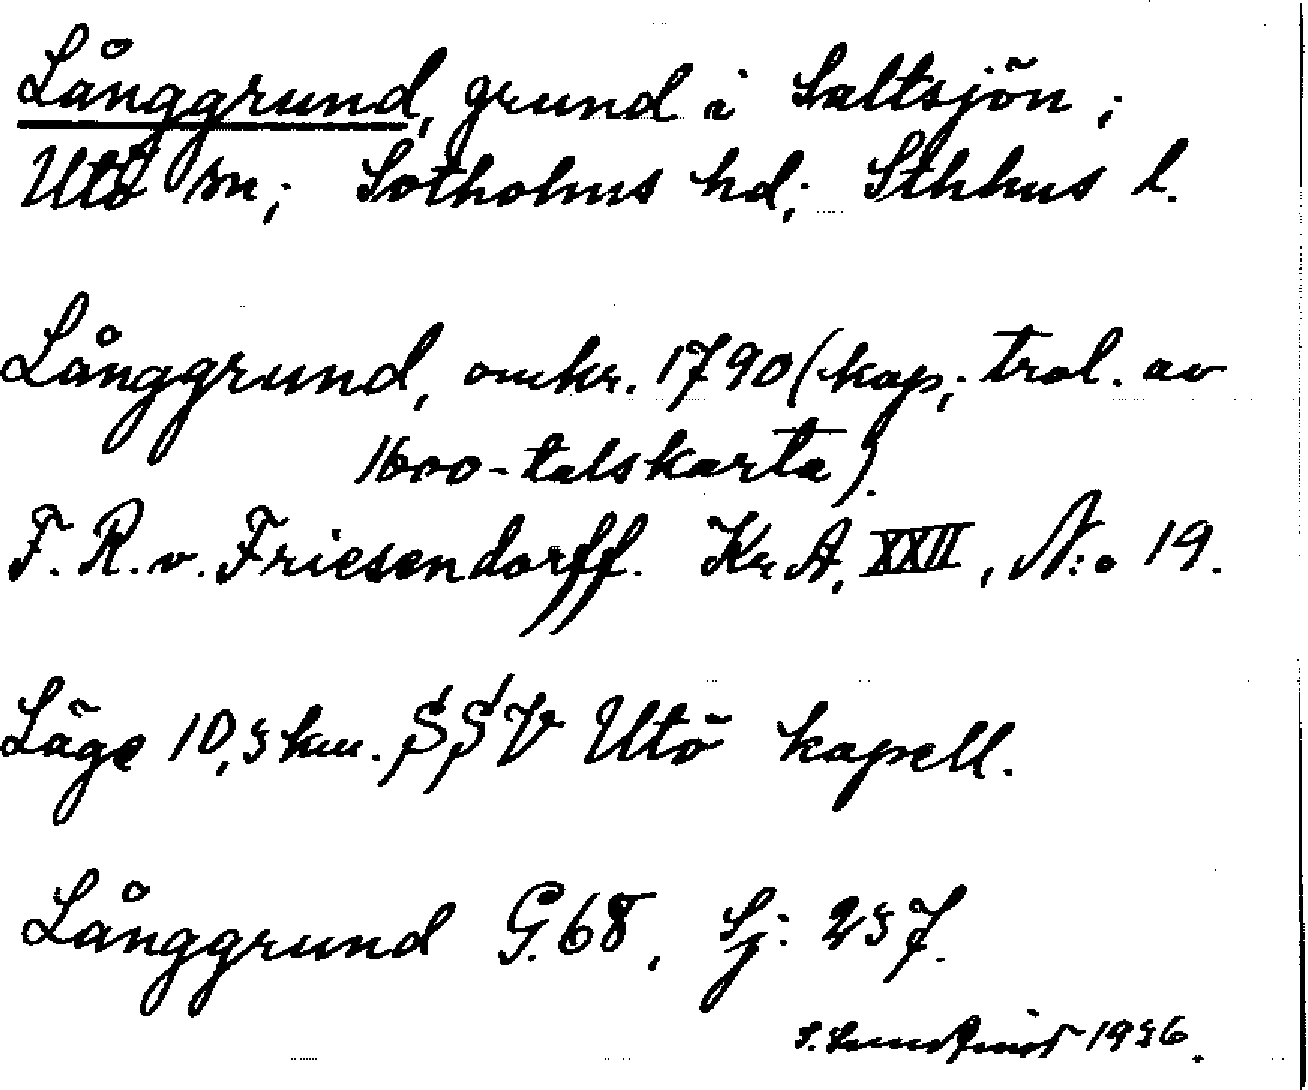 Långgrund, grund i Saltsjön;
Utö sn; Sotholms hd; Sthlms l.
Långgrund, omkr. 1790 (kop; trol. av
1600-talskarta).
F. R. v. Friesendorff. Kr A, XXII, N:o 19.
Läge 10,5 km. SSV Utö kapell.
Långgrund G. 68, Sj: 257.
1956.